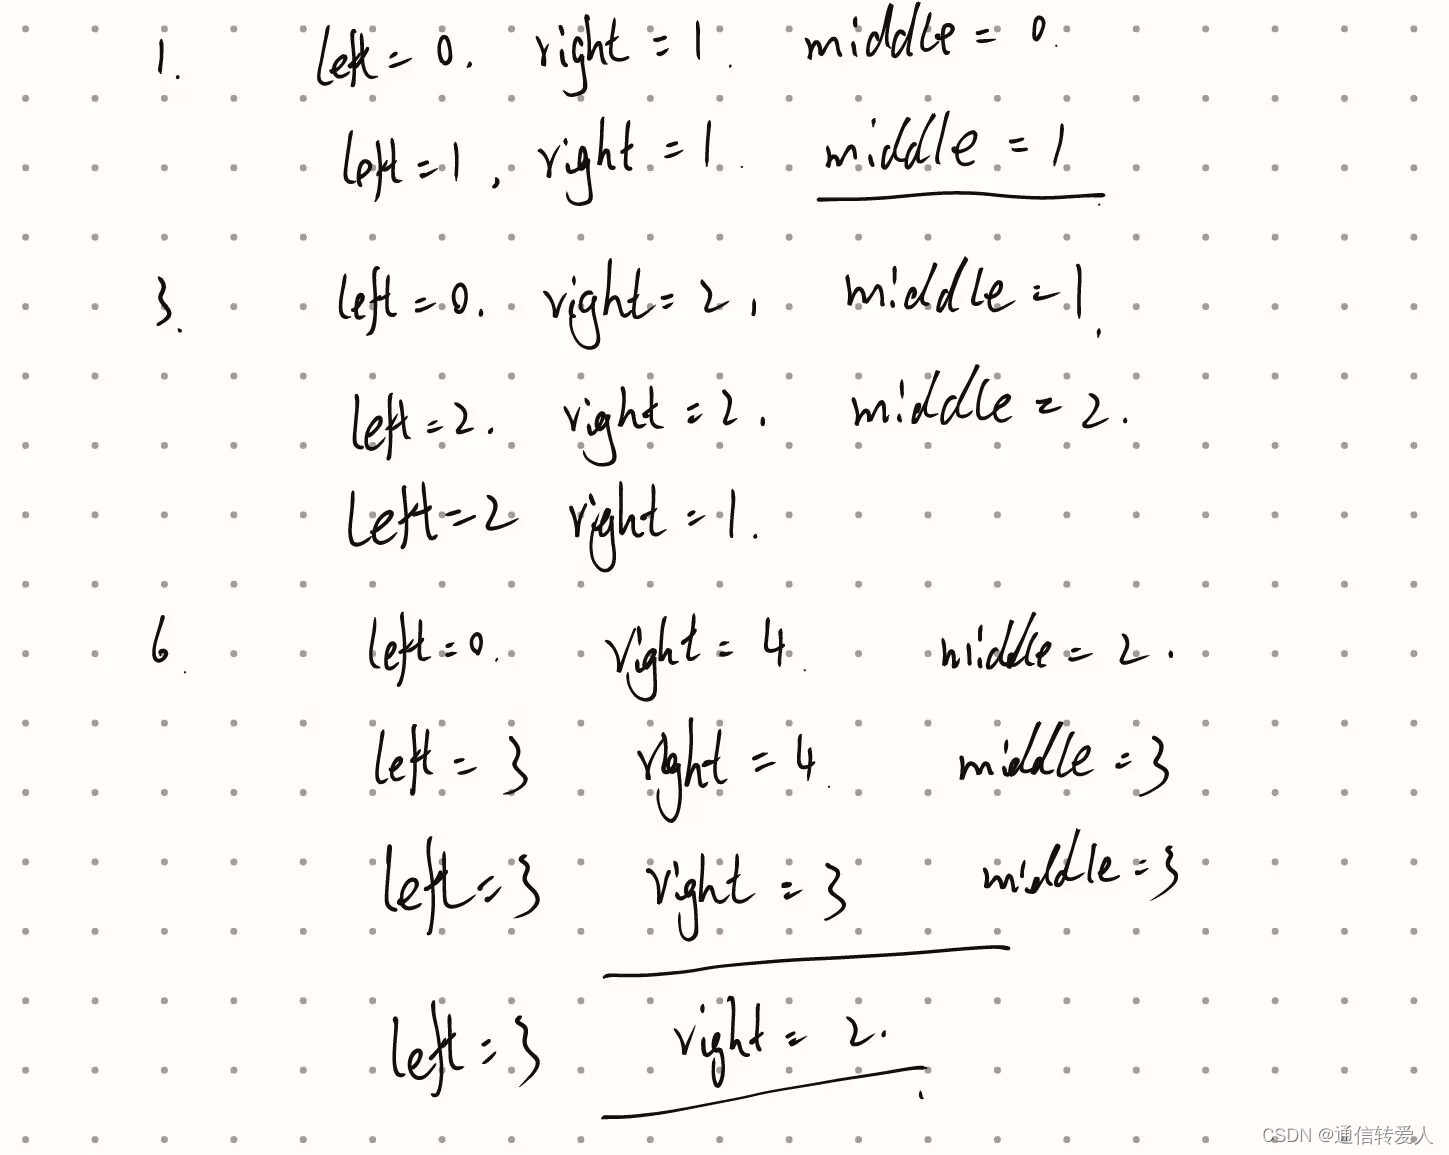 1. left = 0. right = 1. middle = 0.
left = 1, right = 1. middle = 1
3. left = 0. right = 2, middle = 1.
left = 2. right = 2. middle = 2.
left = 2 right = 1.
6. left = 0. right = 4. middle = 2.
left = 3 right = 4. middle = 3
left = 3 right = 3 middle = 3
left = 3 right = 2.
CSDN @通信转爱人